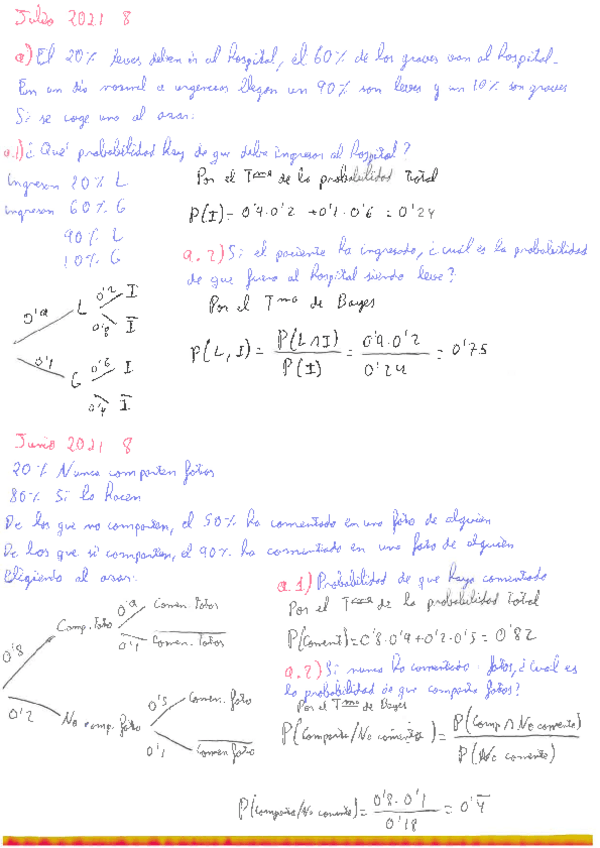 Julio 2021 8
a) El 20% leves deben ir al hospital, el 60% de los graves van al hospital.
En un día normal a urgencias llegan un 90% son leves y un 10% son graves
Si se coge uno al azar:
a.1) ¿Qué probabilidad hay de que deba ingresar al hospital?
Ingresan 20% L
ingresan 60% G
90% L
10% G
Por el Tma de la probabilidad total
P(I)= 0'9·0'2 +0'1·0'6 = 0'24
a.2) Si el paciente ha ingresado, ¿cuál es la probabilidad
de que fuera al hospital siendo leve?
Por el Tma de Bayes
P(L, I) = P(L∩I) / P(I) = 0'9·0'2 / 0'24 = 0'75
0'9 L 0'2 I
0'8 I̅
0'1 G 0'6 I
0'4 I̅
Junio 2021 8
20% Nunca comparten fotos
80% Si lo hacen
De los que no comparten, el 50% ha comentado en una foto de alguien
De los que si comparten, el 90% ha comentado en una foto de alguien
Eligiendo al azar:
a.1) Probabilidad de que haya comentado
Por el Tma de la probabilidad total
P(Coment)=0'8·0'9+0'2·0'5 = 0'82
a.2) Si nunca ha comentado fotos, ¿cual es
la probabilidad de que comparta fotos?
Por el Tma de Bayes
P(Comparte/No comenta) = P(Comp ∩ No comenta) / P(No comenta)
0'8 Comp. foto 0'9 Comen. fotos
0'1 Comen. fotos
0'2 No comp. foto 0'5 Comen. foto
0'1 Comen foto
P(comparte/No comenta) = 0'8·0'1 / 0'18 = 0'4̅